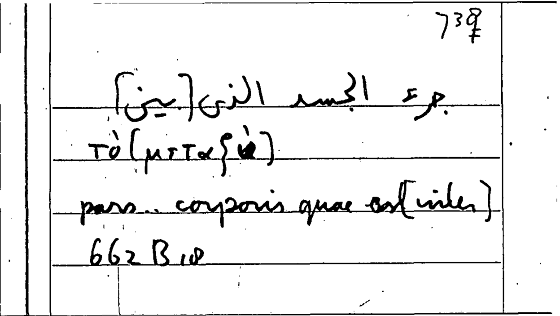 739
جزء الجسد الذى [بين]
τὸ (μεταξὺ)
pars.. corporis quae est [inter]
662 B 18